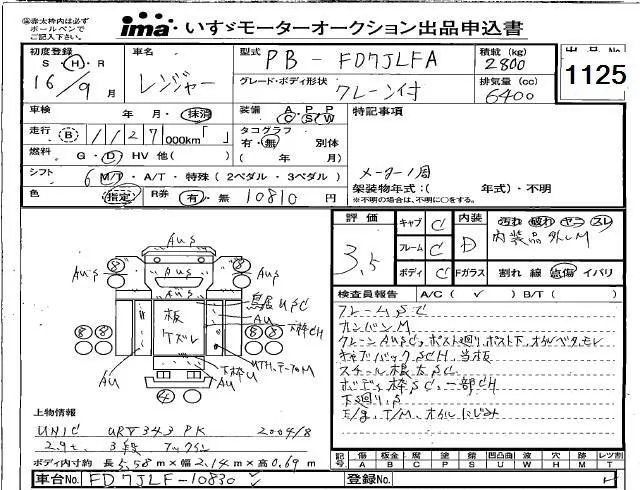 ㊟赤太枠内は必ずボールペンでご記入下さい。
ima いすゞモーターオークション出品申込書
初度登録 S・H・R 16/9月
車名 レンジャー
型式 PB-FD7JLFA
グレード・ボディ形状 クレーン付
積載(kg) 2800
排気量(cc) 6400
出品No. 1125
車検 年・月・抹消
装備 A P P C S W
特記事項
走行 B 127 000km「 」
タコグラフ 有・無 別体 ( 年 月)
燃料 G・D・HV 他( )
メーター1周
シフト 6 M/T・A/T・特殊(2ペダル・3ペダル)
架装物年式:( 年式)・不明
※不明の場合は、不明に○をする。
色 指定
R券 有・無 10810 円
評価 3.5
キャブ C
フレーム C
ボディ C
内装 D
Fガラス
汚れ 破れ ヤコ スレ
内装品外しM
割れ 線 点傷 イバリ
検査員報告 A/C( ✓ ) B/T( )
フレームSC
カンバンM
クレーンAUSC、ポスト廻り、ポスト下、オイルベタ、モレ
キャブバックSCH、当板
スチール根太SC
ボディ枠SC、一部CH
下廻りS
E/g、T/M、オイルにじみ
AUS
8 8
AUS AUS AUS
AUS
鳥居USC
AU
板ケズレ
下枠CH
8 8 8 8
AU
下枠U
4
上物情報
UNIC URV343PK 2004/8
2.9t 3段 フックイン
ボディ内寸約 長5.58m×幅2.14m×高0.69m
記号 傷A 板金B 腐C 塗P 錆S 凹凸曲U 波W 穴H 跡M レツ割T
車台No. FD7JLF-10830
登録No.